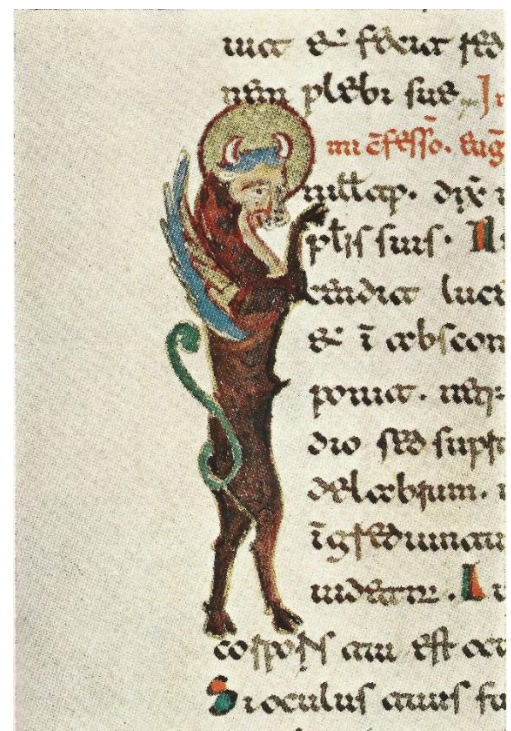 uit & fecit red
nem plebi sue. I
ni c̄fesso. eug
n ill̄ tp̄. dix̄ i
suis. N
cendit luce
& ī abscon
ponit. neq;
dio sed supr
delabrum. u
īgrediunt
uideant. L u
corporis tui est oc
Si oculus tuus fu